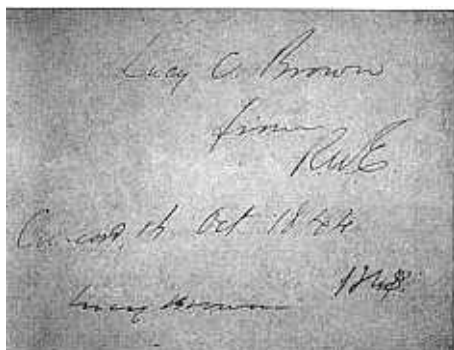 Lucy C. Brown
from
RWE
Concord, 16 Oct 1844
Lucy Brown